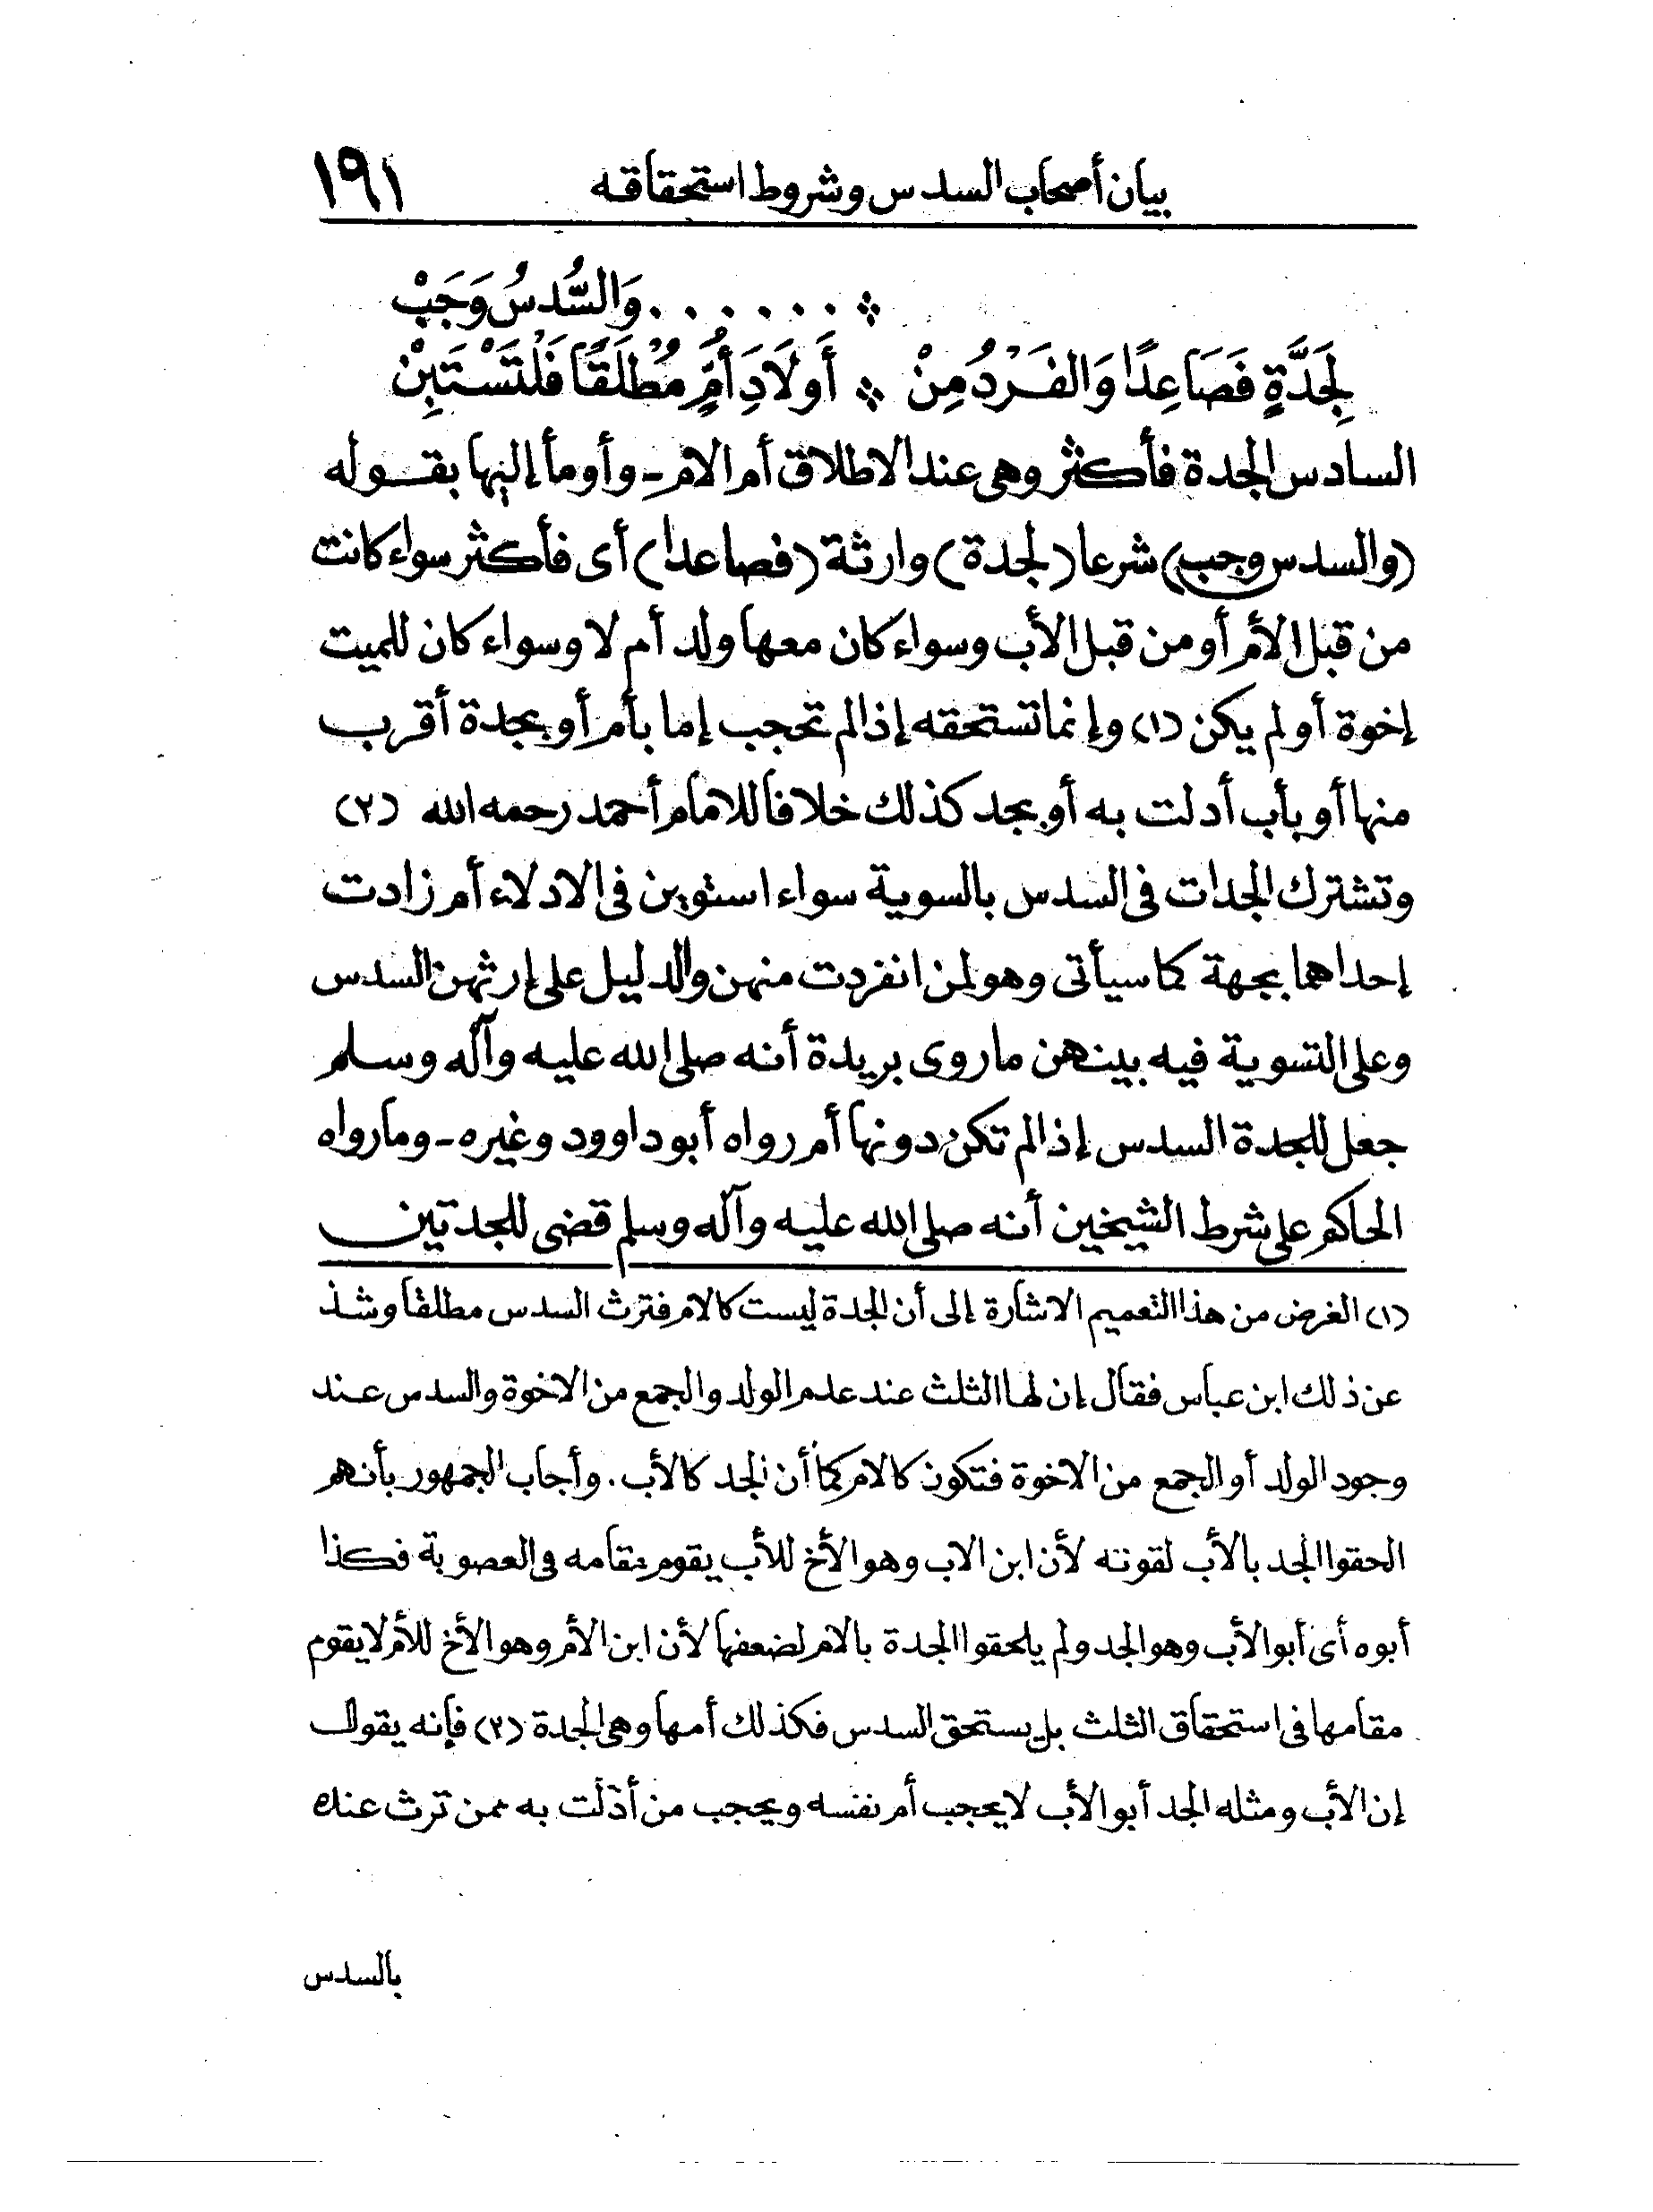 بيان أصحاب السدس وشروط استحقاقه ١٩١
❖ . . . . . . وَالسُّدسُ وَجَبْ
لِجَدَّةٍ فَصَاعِدًا وَالفَرْدُ مِنْ ❖ أَولَادَ أُمٍّ مُطْلَقًا فَلْتَسْتَبِنْ
السادس الجدة فأكثر وهى عند الاطلاق أم الام - وأومأ إليها بقوله
(والسدس وجب) شرعا (لجدة) وارثة (فصاعدا) أى فأكثر سواء كانت
من قبل الأم أو من قبل الأب وسواء كان معها ولد أم لا وسواء كان للميت
إخوة أو لم يكن (١) وإنما تستحقه إذا لم تحجب إما بأم أو بجدة أقرب
منها أو بأب أدلت به أو بجد كذلك خلافا للامام أحمد رحمه الله (٢)
وتشترك الجدات فى السدس بالسوية سواء استوين فى الادلاء أم زادت
إحداهما بجهة كما سيأتى وهو لمن انفردت منهن والدليل على إرثهن السدس
وعلى التسوية فيه بينهن ما روى بريدة أنه صلى الله عليه وآله وسلم
جعل للجدة السدس إذا لم تكن دونها أم رواه أبو داوود وغيره - وما رواه
الحاكم على شرط الشيخين أنه صلى الله عليه وآله وسلم قضى للجدتين
(١) الغرض من هذا التعميم الاشارة إلى أن الجدة ليست كالام فترث السدس مطلقا وشذ
عن ذلك ابن عباس فقال إن لها الثلث عند عدم الولد والجمع من الاخوة والسدس عند
وجود الولد أو الجمع من الاخوة فتكون كالام كما أن الجد كالأب. وأجاب الجمهور بأنهم
الحقوا الجد بالأب لقوته لأن ابن الاب وهو الأخ للأب يقوم مقامه فى العصوبة فكذا
أبوه أى أبو الأب وهو الجد ولم يلحقوا الجدة بالام لضعفها لأن ابن الأم وهو الأخ للأم لا يقوم
مقامها فى استحقاق الثلث بل يستحق السدس فكذلك أمها وهى الجدة (٢) فإنه يقول
إن الأب ومثله الجد أبو الأب لا يحجب أم نفسه ويحجب من أدلت به ممن ترث عنده
بالسدس